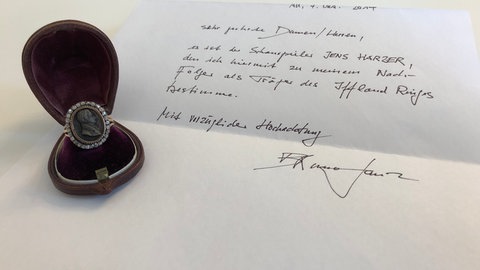 sehr geehrte Damen/Herren,
es ist der Schauspieler JENS HARZER,
den ich hiermit zu meinem Nach-
folger als Träger des Iffland Ringes
bestimme.
Mit vorzüglicher Hochachtung
Bruno Ganz